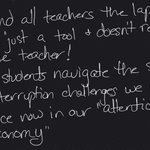 nd all teachers the lap
"just a tool & doesn't r
e teacher!
students navigate the s
terruption challenges we
ce now in our "attentio
onomy"